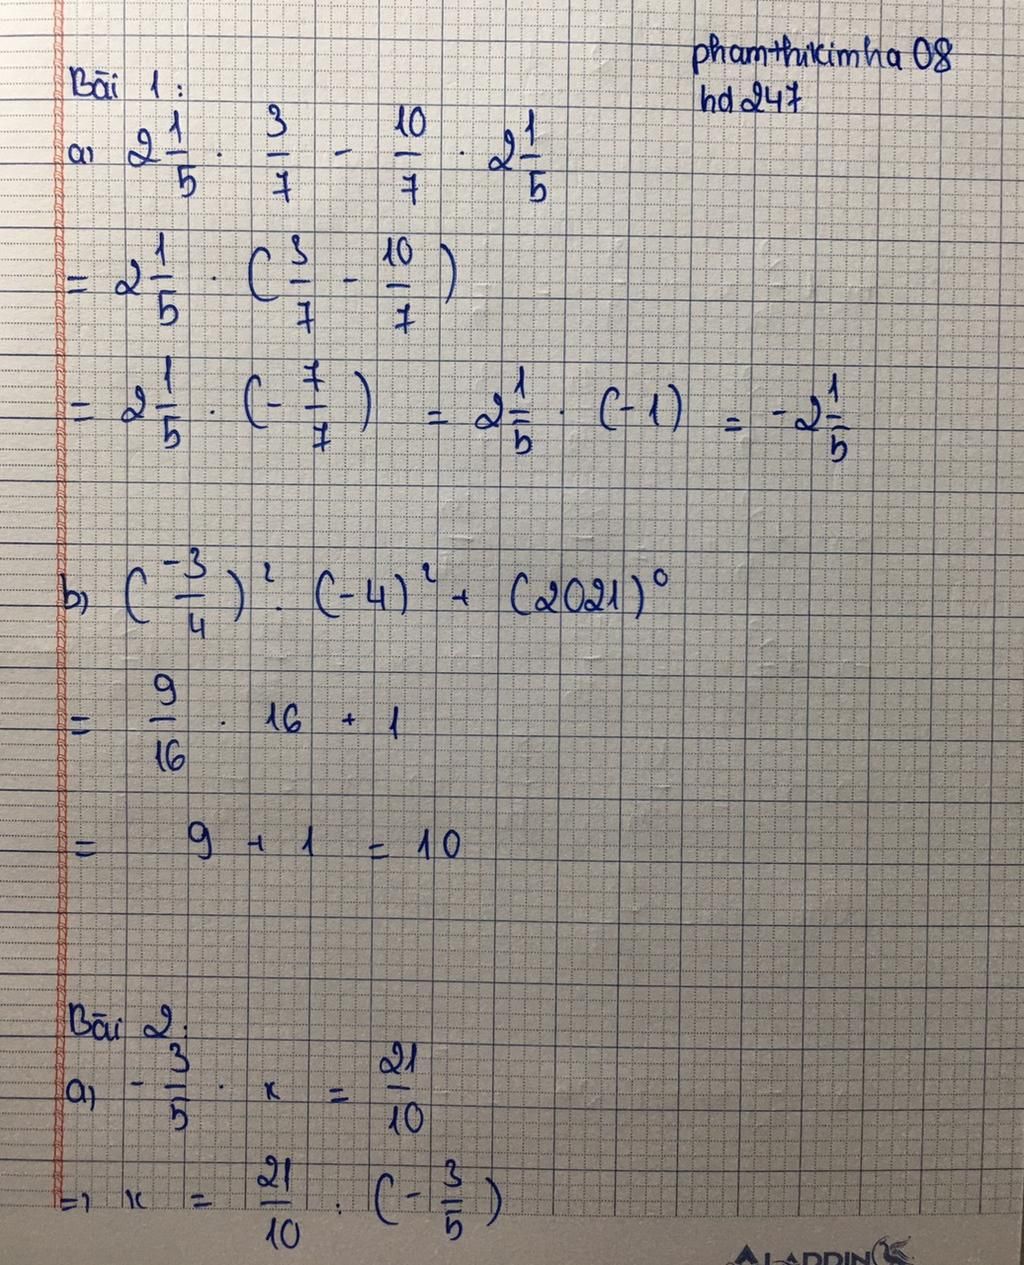 phamthikimha 08
hd 247
Bài 1:
a) 2 1/5 . 3/7 - 10/7 . 2 1/5
= 2 1/5 . (3/7 - 10/7)
= 2 1/5 . (- 7/7) = 2 1/5 . (-1) = -2 1/5
b) (-3/4)² . (-4)² + (2021)⁰
= 9/16 . 16 + 1
= 9 + 1 = 10
Bài 2:
a) - 3/5 . x = 21/10
=> x = 21/10 : (- 3/5)
ALADDIN